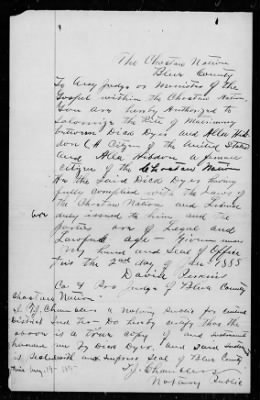 The Choctaw Nation
Blue County
To Any Judge or Minister of the
Gospel within the Choctaw Nation
You are hereby Authorized to
Solomize the Rite of Matrimony
between Dick Dyer and Alla
(A Citizen of the United States
And Alla Hibdon a female
citizen of the Choctaw Nation
the Said Dick Dyer having
fully complied with the Laws of
the Choctaw Nation and License
duly issued to him and the
parties are of Legal and
Lawful age - Given under
My hand and Seal of Office
this the 2nd day of 1888
David Perkins
Co & Pro Judge of Blue County
Choctaw Nation
I T.J. Chambless a Notary Public for Central
District Ind Ter Do hereby certify that the
above is a true copy of
me by Dick Dyer, and said
is Sealed with and impress Seal of Blue County
this
T.J. Chambless
Notary Public